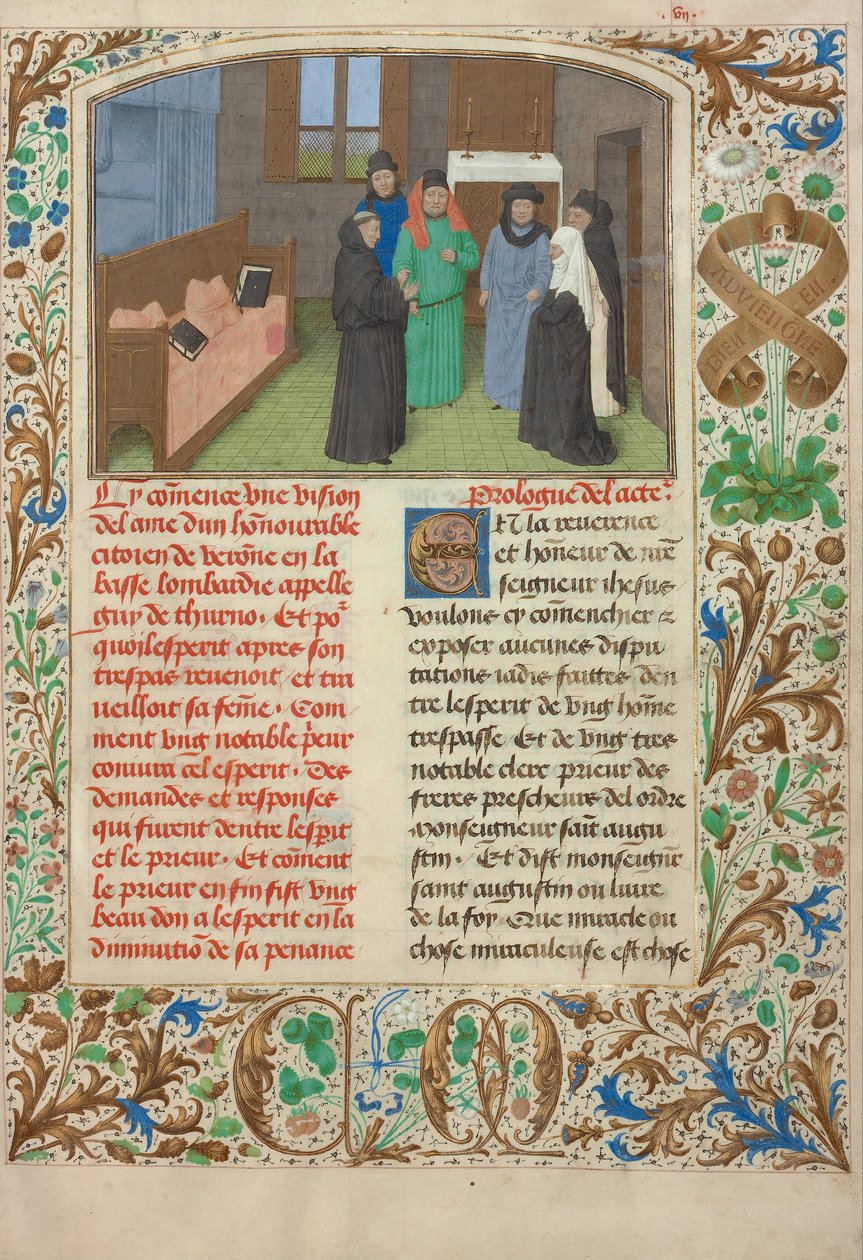 .vij.
Cy cōmence vne vision
del ame dun hōnourable
citoien de verōne en la
basse lombardie appelle
guy de thurno. Et poͬ
quoy lesperit apres son
trespas reuenoit et tra
ueilloit sa fēme. Com
ment vng notable p̄eur
coniura cel esperit. Des
demandes et responses
qui furent dentre lesp̄it
et le prieur. Et cōment
le prieur en fin fist vng
beau don a lesperit en la
diminutiō de sa penance
Prologue del acteͬ.
ET la reuerence
et hōneur de nr̄e
seigneur ihesus
voulons cy cōmenchier &
exposer aucunes dispu
tations iadis faittes den
tre lesperit de vng hōme
trespasse Et de vng tres
notable clerc prieur des
freres prescheurs del ordre
monseigneur saīt augu
stin. Et dist monseignr̄
saint augustin ou liure
de la foy. Que miracle ou
chose miraculeuse est chose
BIEN
ADVIENGNE
EN
C M